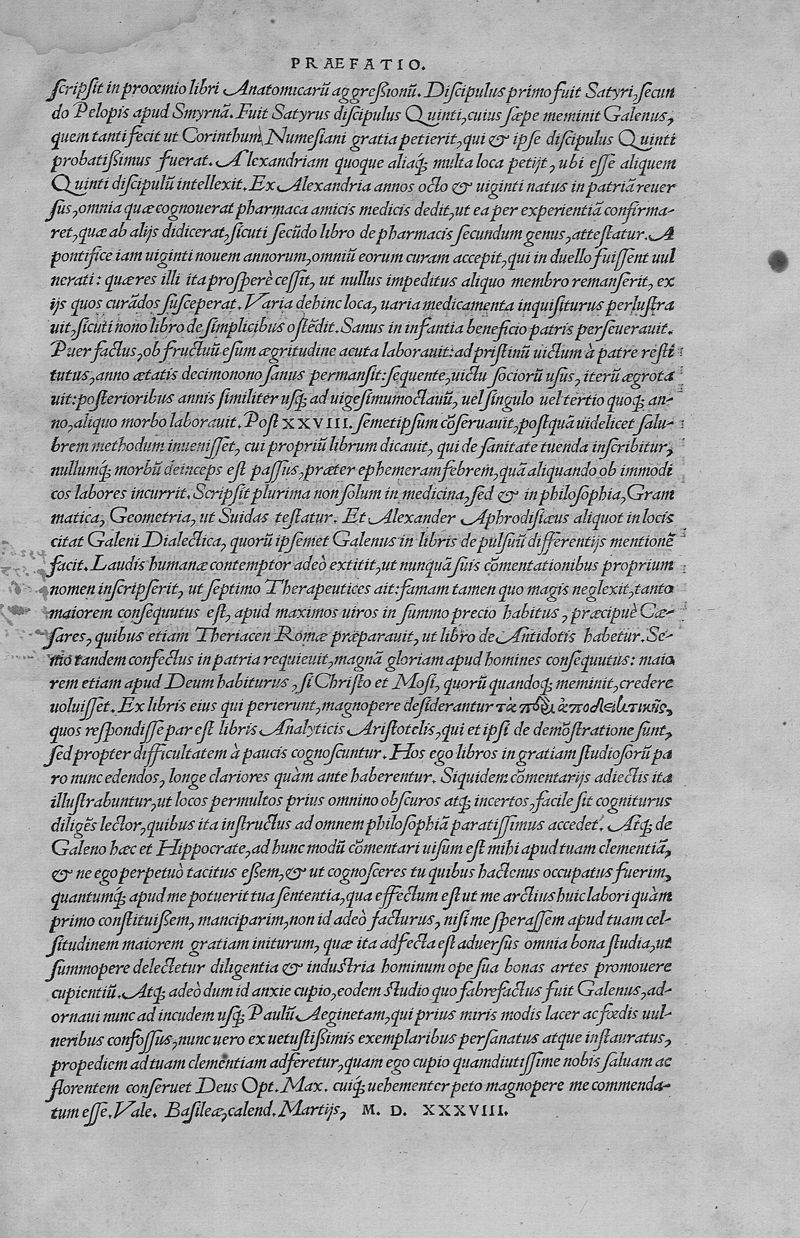 PRAEFATIO.
scripsit in prooemio libri Anatomicarũ aggreßionũ. Discipulus primo fuit Satyri, secun
do Pelopis apud Smyrnã. Fuit Satyrus discipulus Quinti, cuius sæpe meminit Galenus,
quem tanti fecit ut Corinthum, Numesiani gratia petierit, qui & ipse discipulus Quinti
probatißimus fuerat. Alexandriam quoque aliaq́; multa loca petijt, ubi esse aliquem
Quinti discipulũ intellexit. Ex Alexandria annos octo & uiginti natus in patriã reuer
sus, omnia quæ cognouerat pharmaca amicis medicis dedit, ut ea per experientiã confirma-
ret, quæ ab alijs didicerat, sicuti secũdo libro de pharmacis secundum genus, attestatur. A
pontifice iam uiginti nouem annorum, omniũ eorum curam accepit, qui in duello fuissent uul
nerati: quæ res illi ita prosperè cessit, ut nullus impeditus aliquo membro remanserit, ex
ijs quos curãdos susceperat. Varia dehinc loca, uaria medicamenta inquisiturus perlustra
uit, sicuti nono libro de simplicibus ostẽdit. Sanus in infantia beneficio patris perseuerauit.
Puer factus, ob fructuũ esum ægritudine acuta laborauit: ad pristinũ uictum à patre resti
tutus, anno ætatis decimonono sanus permansit: sequente, uictu sociorũ usus, iterũ ægrota
uit: posterioribus annis similiter usq; ad uigesimumoctauũ, uel singulo uel tertio quoq; an-
no, aliquo morbo laborauit. Post XXVIII. semetipsum cõseruauit, postquã uidelicet salu-
brem methodum inuenisset, cui propriũ librum dicauit, qui de sanitate tuenda inscribitur,
nullumq́; morbũ deinceps est passus, præter ephemeram febrem, quã aliquando ob immodi
cos labores incurrit. Scripsit plurima non solum in medicina, sed & in philosophia, Gram
matica, Geometria, ut Suidas testatur. Et Alexander Aphrodisiæus aliquot in locis
citat Galeni Dialectica, quorũ ipsemet Galenus in libris de pulsuũ differentijs mentionẽ
facit. Laudis humanæ contemptor adeò extitit, ut nunquã suis cõmentationibus proprium
nomen inscripserit, ut septimo Therapeutices ait: famam tamen quo magis neglexit, tanto
maiorem consequutus est, apud maximos uiros in summo precio habitus, præcipuè Cæ-
sares, quibus etiam Theriacen Romæ præparauit, ut libro de Antidotis habetur. Se-
nio tandem confectus in patria requieuit, magnã gloriam apud homines consequutus: maio
rem etiam apud Deum habiturus, si Christo et Mosi, quorũ quandoq; meminit, credere
uoluisset. Ex libris eius qui perierunt, magnopere desiderantur τὰ περὶ ἀποδείξεως,
quos respondisse par est libris Analyticis Aristotelis, qui et ipsi de demõstratione sunt,
sed propter difficultatem à paucis cognoscuntur. Hos ego libros in gratiam studiosorũ pa
ro nunc edendos, longe clariores quàm ante haberentur. Siquidem cõmentarijs adiectis ita
illustrabuntur, ut locos permultos prius omnino obscuros atq; incertos, facile sit cogniturus
diligẽs lector, quibus ita instructus ad omnem philosophiã paratissimus accedet. Atq; de
Galeno hæc et Hippocrate, ad hunc modũ cõmentari uisum est mihi apud tuam clementiã,
& ne ego perpetuò tacitus essem, & ut cognosceres tu quibus hactenus occupatus fuerim,
quantumq́; apud me potuerit tua sententia, qua effectum est ut me arctius huic labori quàm
primo constituissem, manciparim, non id adeò facturus, nisi me sperassem apud tuam cel-
situdinem maiorem gratiam initurum, quæ ita adfecta est aduersus omnia bona studia, ut
summopere delectetur diligentia & industria hominum ope sua bonas artes promouere
cupientiũ. Atq; adeò dum id anxie cupio, eodem studio quo fabrefactus fuit Galenus, ad-
ornaui nunc ad incudem usq; Paulũ Aeginetam, qui prius miris modis lacer ac fœdis uul-
neribus confossus, nunc uero ex uetustißimis exemplaribus persanatus atque instauratus,
propediem ad tuam clementiam adferetur, quam ego cupio quamdiutissime nobis saluam ac
florentem conseruet Deus Opt. Max. cuiq; uehementer peto magnopere me commenda-
tum esse. Vale. Basileæ, calend. Martijs, M. D. XXXVIII.